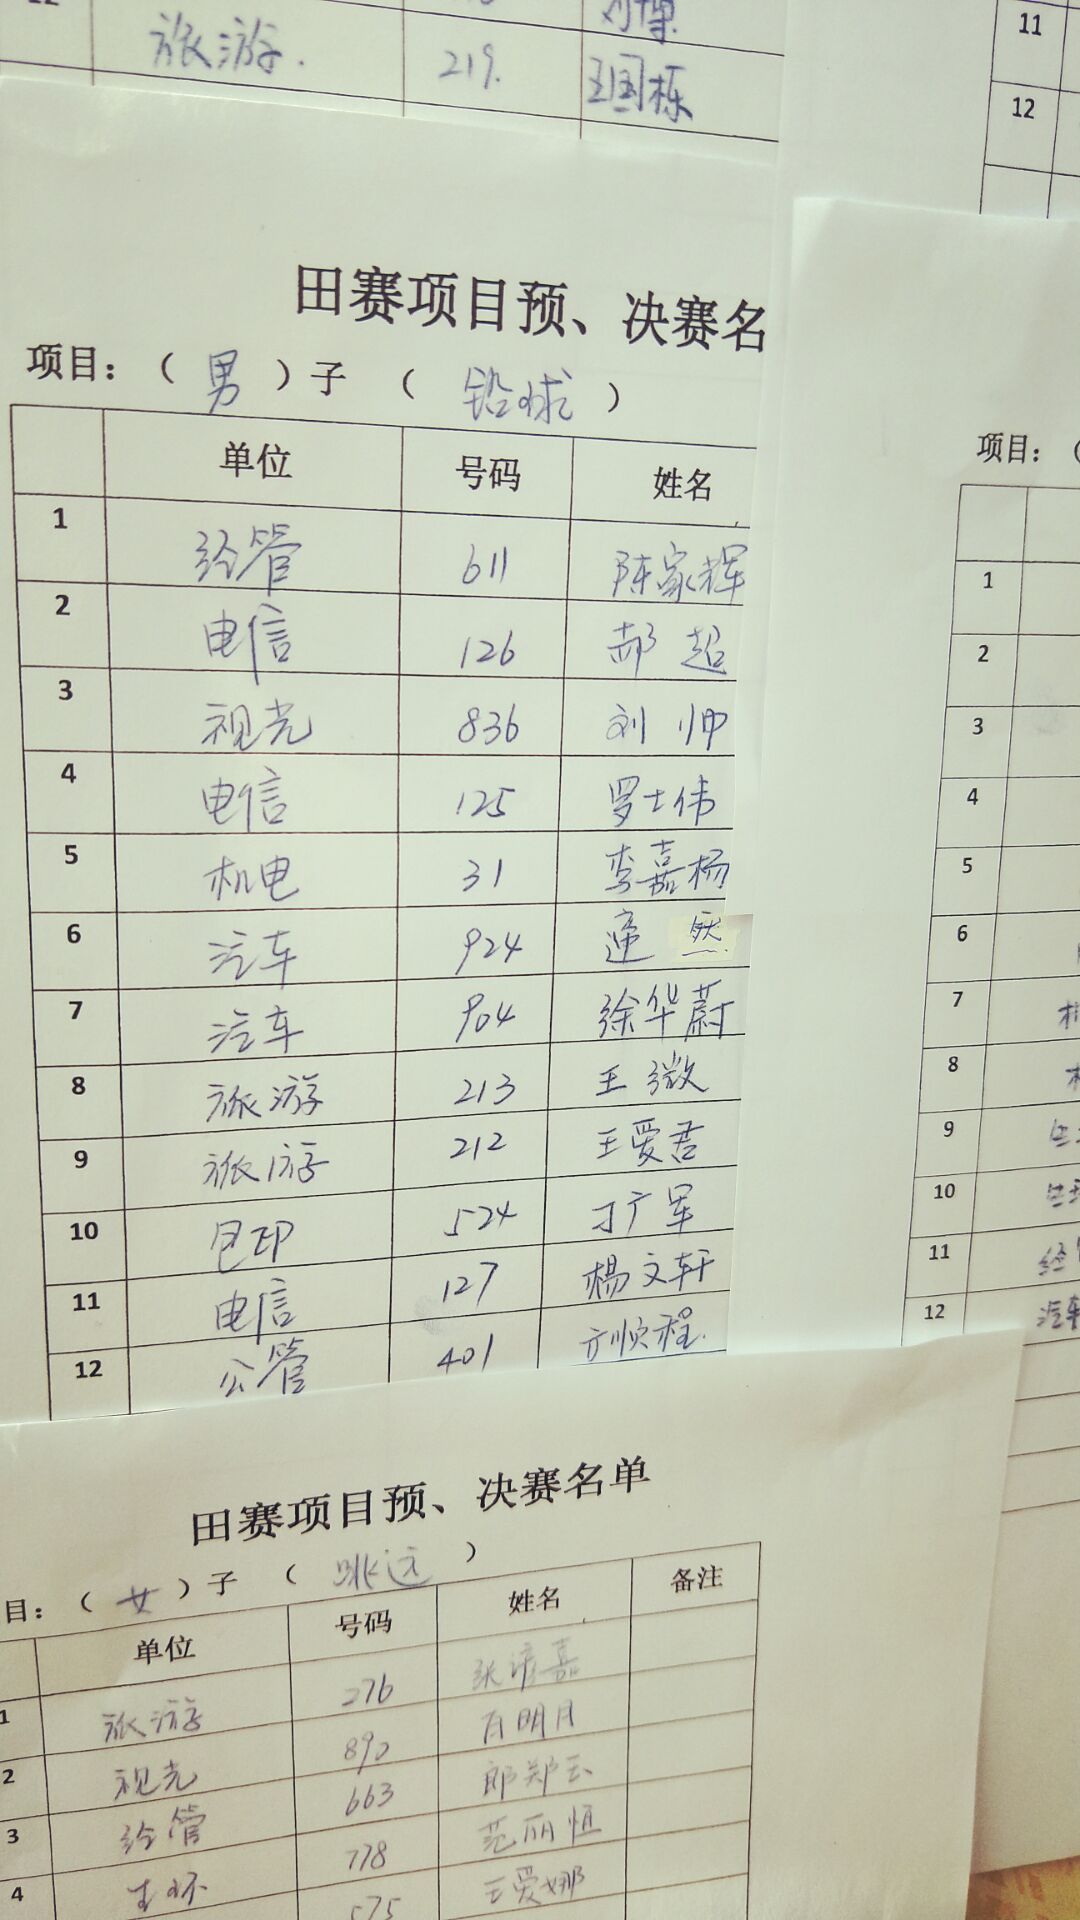 12
旅游. 219. 王国栋
11
12
田赛项目预、决赛名
项目：（男）子（铅球）
单位 号码 姓名
1 经管 611 陈家辉
2 电信 126 郝超
3 视光 836 刘帅
4 电信 125 罗士伟
5 机电 31 李嘉杨
6 汽车 924 然
7 汽车 904 徐华蔚
8 旅游 213 王微
9 旅游 212 王爱君
10 包印 524 丁广军
11 电信 127 杨文轩
12 公管 401 方顺程.
项目：（
1
2
3
4
5
6
7
8
9
10
11
12 汽车
田赛项目预、决赛名单
目：（女）子（跳远）
单位 号码 姓名 备注
1 旅游 276
2 视光 890 肖明月
3 经管 663 郎郑云
4 生环 778 范丽恒
575 王爱娜